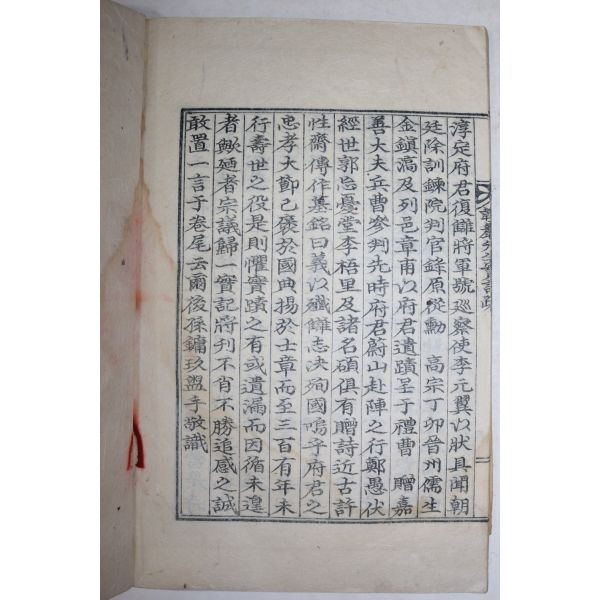 淳定府君復讎將軍號巡察使李元翼以狀具聞朝
廷除訓鍊院判官錄原從勳 高宗丁卯晉州儒生
金鎭滈及列邑章甫以府君遺蹟呈于禮曹 贈嘉
善大夫兵曹參判先時府君蔚山赴陣之行鄭愚伏
經世郭忘憂堂李梧里及諸名碩俱有贈詩近古許
性齋傳作墓銘曰義以殲讎志決殉國嗚乎府君之
忠孝大節已褒於國典揚於士章而至三百有年未
行壽世之役是則懼實蹟之有或遺漏而因循未遑
者歟廼者宗議歸一實記將刊不肖不勝追感之誠
敢置一言于卷尾云爾後孫鏞玖盥手敬識